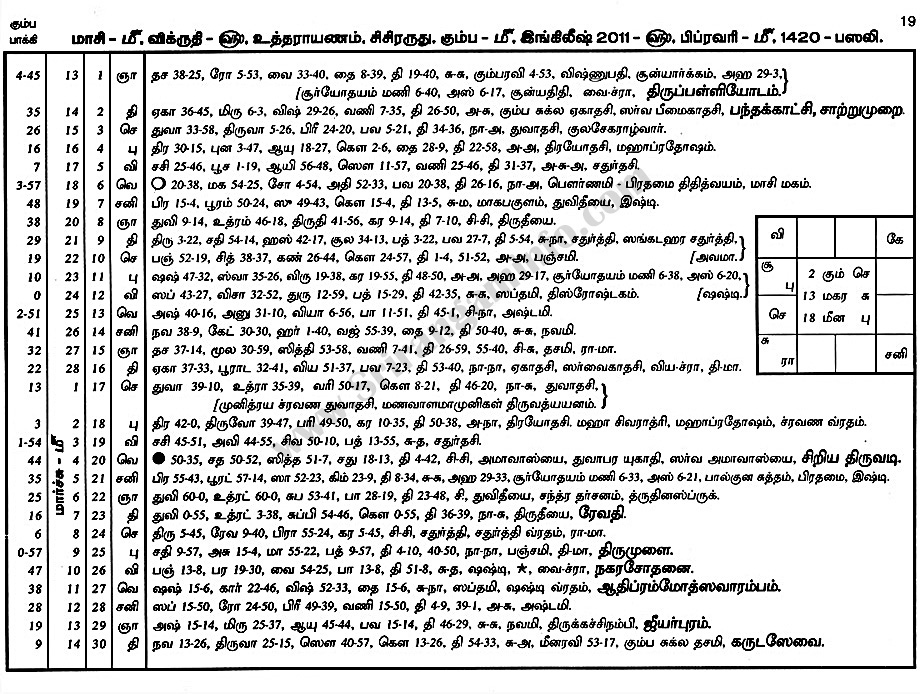 19
கும்ப
பாக்கி
மாசி - மீ, விக்ருதி - ௵, உத்தராயணம், சிசிரருது, கும்ப - மீ, இங்கிலீஷ் 2011 - ௵, பிப்ரவரி - மீ, 1420 - பஸலி.
4-45 13 1 ஞா தச 38-25, ரோ 5-53, வை 33-40, தை 8-39, தி 19-40, சு-சு, கும்பரவி 4-53, விஷ்ணுபதி, சூன்யார்க்கம், அஹ 29-3,
[சூர்யோதயம் மணி 6-40, அஸ் 6-17, சூன்யதிதி, வை-ச்ரா, திருப்பள்ளியோடம்.
35 14 2 தி ஏகா 36-45, மிரு 6-3, விஷ் 29-26, வணி 7-35, தி 26-50, அ-சு, கும்ப சுக்ல ஏகாதசி, ஸர்வ பீமைகாதசி, பந்தக்காட்சி, சாற்றுமுறை.
26 15 3 செ துவா 33-58, திருவா 5-26, பிரீ 24-20, பவ 5-21, தி 34-36, நா-அ, துவாதசி, குலசேகராழ்வார்.
16 16 4 பு திர 30-15, புன 3-47, ஆயு 18-27, கௌ 2-6, தை 28-9, தி 22-58, அ-அ, திரயோதசி, மஹாப்ரதோஷம்.
7 17 5 வி சசி 25-46, பூச 1-19, ஆயி 56-48, ஸௌ 11-57, வணி 25-46, தி 31-37, அ-சு-அ, சதுர்தசி.
3-57 18 6 வெ 20-38, மக 54-25, சோ 4-54, அதி 52-33, பவ 20-38, தி 26-16, நா-அ, பௌர்ணமி - பிரதமை திதித்வயம், மாசி மகம்.
48 19 7 சனி பிர 15-4, பூரம் 50-24, ஸு 49-43, கௌ 15-4, தி 13-5, சு-ம, மாகபகுளம், துவிதீயை, இஷ்டி.
38 20 8 ஞா துவி 9-14, உத்ரம் 46-18, திருதி 41-56, கர 9-14, தி 7-10, சி-சி, திருதீயை.
29 21 9 தி திரு 3-22, சதி 54-14, ஹஸ் 42-17, சூல 34-13, பத் 3-22, பவ 27-7, தி 5-54, சு-நா, சதுர்த்தி, ஸங்கடஹர சதுர்த்தி,
19 22 10 செ பஞ் 52-19, சித் 38-37, கண் 26-44, கௌ 24-57, தி 1-4, 51-52, அ-அ, பஞ்சமி. [அவமா.
10 23 11 பு ஷஷ் 47-32, ஸ்வா 35-26, விரு 19-38, கர 19-55, தி 48-50, அ-அ, அஹ 29-17, சூர்யோதயம் மணி 6-38, அஸ் 6-20,
0 24 12 வி ஸப் 43-27, விசா 32-52, துரு 12-59, பத் 15-29, தி 42-35, சு-சு, ஸப்தமி, திஸ்ரோஷ்டகம். [ஷஷ்டி.
2-51 25 13 வெ அஷ் 40-16, அனு 31-10, வியா 6-56, பா 11-51, தி 45-1, சி-நா, அஷ்டமி.
41 26 14 சனி நவ 38-9, கேட் 30-30, ஹர் 1-40, வஜ் 55-39, தை 9-12, தி 50-40, சு-சு, நவமி.
32 27 15 ஞா தச 37-14, மூல 30-59, ஸித்தி 53-58, வணி 7-41, தி 26-59, 55-40, சி-சு, தசமி, ரா-மா.
22 28 16 தி ஏகா 37-33, பூராட 32-41, விய 51-37, பவ 7-23, தி 53-40, நா-நா, ஏகாதசி, ஸர்வைகாதசி, விய-ச்ரா, தி-மா.
13 1 17 செ துவா 39-10, உத்ரா 35-39, வரி 50-17, கௌ 8-21, தி 46-20, நா-சு, துவாதசி,
[முனித்ரய ச்ரவண துவாதசி, மணவாளமாமுனிகள் திருவத்யயனம்.
3 2 18 பு திர 42-0, திருவோ 39-47, பரி 49-50, கர 10-35, தி 50-38, அ-நா, திரயோதசி, மஹா சிவராத்ரி, மஹாப்ரதோஷம், ச்ரவண வ்ரதம்.
1-54 3 19 வி சசி 45-51, அவி 44-55, சிவ 50-10, பத் 13-55, சு-த, சதுர்தசி.
44 4 20 வெ 50-35, சத 50-52, ஸித்த 51-7, சது 18-13, தி 4-42, சி-சி, அமாவாஸ்யை, துவாபர யுகாதி, ஸர்வ அமாவாஸ்யை, சிறிய திருவடி.
35 5 21 சனி பிர 55-43, பூரட் 57-14, ஸா 52-23, கிம் 23-9, தி 8-34, சு-சு, அஹ 29-33, சூர்யோதயம் மணி 6-33, அஸ் 6-21, பால்குன சுத்தம், பிரதமை, இஷ்டி.
25 6 22 ஞா துவி 60-0, உத்ரட் 60-0, சுப 53-41, பா 28-19, தி 23-48, சி, துவிதீயை, சந்த்ர தர்சனம், த்ருதினஸ்ப்ருக்.
16 7 23 தி துவி 0-55, உத்ரட் 3-38, சுப்பி 54-46, கௌ 0-55, தி 36-39, நா-சு, திருதீயை, ரேவதி.
6 8 24 செ திரு 5-45, ரேவ 9-40, பிரா 55-24, கர 5-45, சி-சி, சதுர்த்தி, சதுர்த்தி வ்ரதம், ரா-மா.
0-57 9 25 பு சதி 9-57, அசு 15-4, மா 55-22, பத் 9-57, தி 4-10, 40-50, நா-நா, பஞ்சமி, தி-மா, திருமுளை.
47 10 26 வி பஞ் 13-8, பர 19-30, வை 54-25, பா 13-8, தி 51-8, சு-த, ஷஷ்டி, ★, வை-ச்ரா, நகரசோதனை.
38 11 27 வெ ஷஷ் 15-6, கார் 22-46, விஷ் 52-33, தை 15-6, சு-நா, ஸப்தமி, ஷஷ்டி வ்ரதம், ஆதிப்ரம்மோத்ஸவாரம்பம்.
28 12 28 சனி ஸப் 15-50, ரோ 24-50, பிரீ 49-39, வணி 15-50, தி 4-9, 39-1, அ-சு, அஷ்டமி.
19 13 29 ஞா அஷ் 15-14, மிரு 25-37, ஆயு 45-44, பவ 15-14, தி 46-29, சு-சு, நவமி, திருக்கச்சிநம்பி, ஜீயர்புரம்.
9 14 30 தி நவ 13-26, திருவா 25-15, ஸௌ 40-57, கௌ 13-26, தி 54-33, சு-அ, மீனரவி 53-17, கும்ப சுக்ல தசமி, கருடஸேவை.
மார்ச்சு - மீ
வி கே
சூ பு
செ
சு ரா சனி
2 கும் செ
13 மகர சு
18 மீன பு
www.srirangaminfo.com